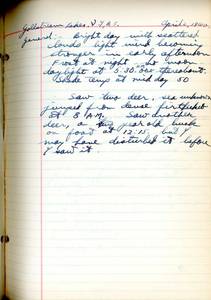 Goldstream Lakes, V.I, B.C. April 2, 1940
General:- Bright day with scattered
clouds. light wind becoming
stronger in early afternoon
Frost at night. no moon
daylight at 5.30 or thereabout.
Shade temp at mid day 50
Saw two deer, sex unknown
jumped from dense
at 8 A.M. Saw another
deer, a year old buck
on foot at 12:15. but I
may have disturbed it before
I saw it